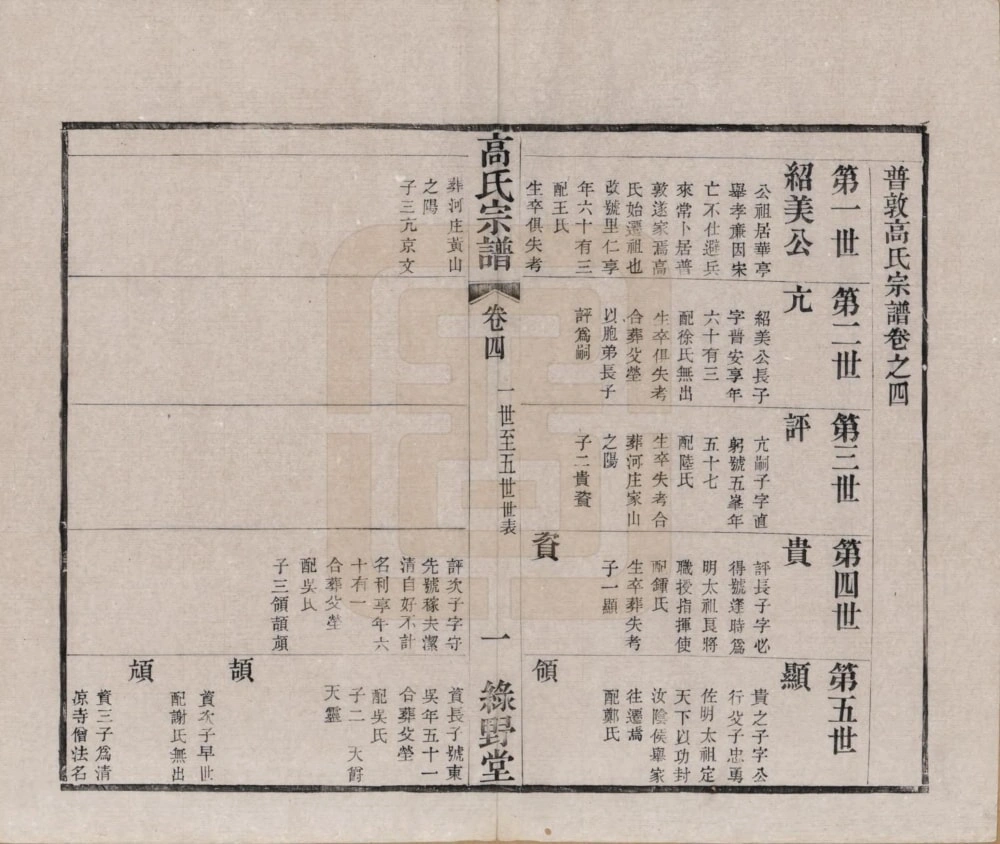 普敦高氏宗譜卷之四
第一世
紹美公
公祖居華亭
舉孝廉因宋
亡不仕避兵
來常卜居普
敦遂家焉高
氏始遷祖也
改號里仁享
年六十有三
配王氏
生卒俱失考
葬河庄黃山
之陽
子三亢京文
第二世
亢
紹美公長子
字晋安享年
六十有三
配徐氏無出
生卒俱失考
合葬父塋
以胞弟長子
評爲嗣
第三世
評
亢嗣子字直
躬號五峯年
五十七
配陸氏
生卒失考合
葬河庄家山
之陽
子二貴資
第四世
貴
評長子字必
得號逢時爲
明太祖良將
職授指揮使
配鍾氏
生卒葬失考
子一顯
資
評次子字守
先號稼夫潔
清自好不計
名利享年六
十有一
合葬父塋
配吳氏
子三領頡頏
第五世
顯
貴之子字公
行父子忠勇
佐明太祖定
天下以功封
汝陰侯舉家
往遷焉
配鄭氏
領
資長子號東
吳年五十一
合葬父塋
配吳氏
子二 天爵
天靈
頡
資次子早世
配謝氏無出
頏
資三子爲清
凉寺僧法名
高氏宗譜
卷四
一世至五世世表
一
綠野堂